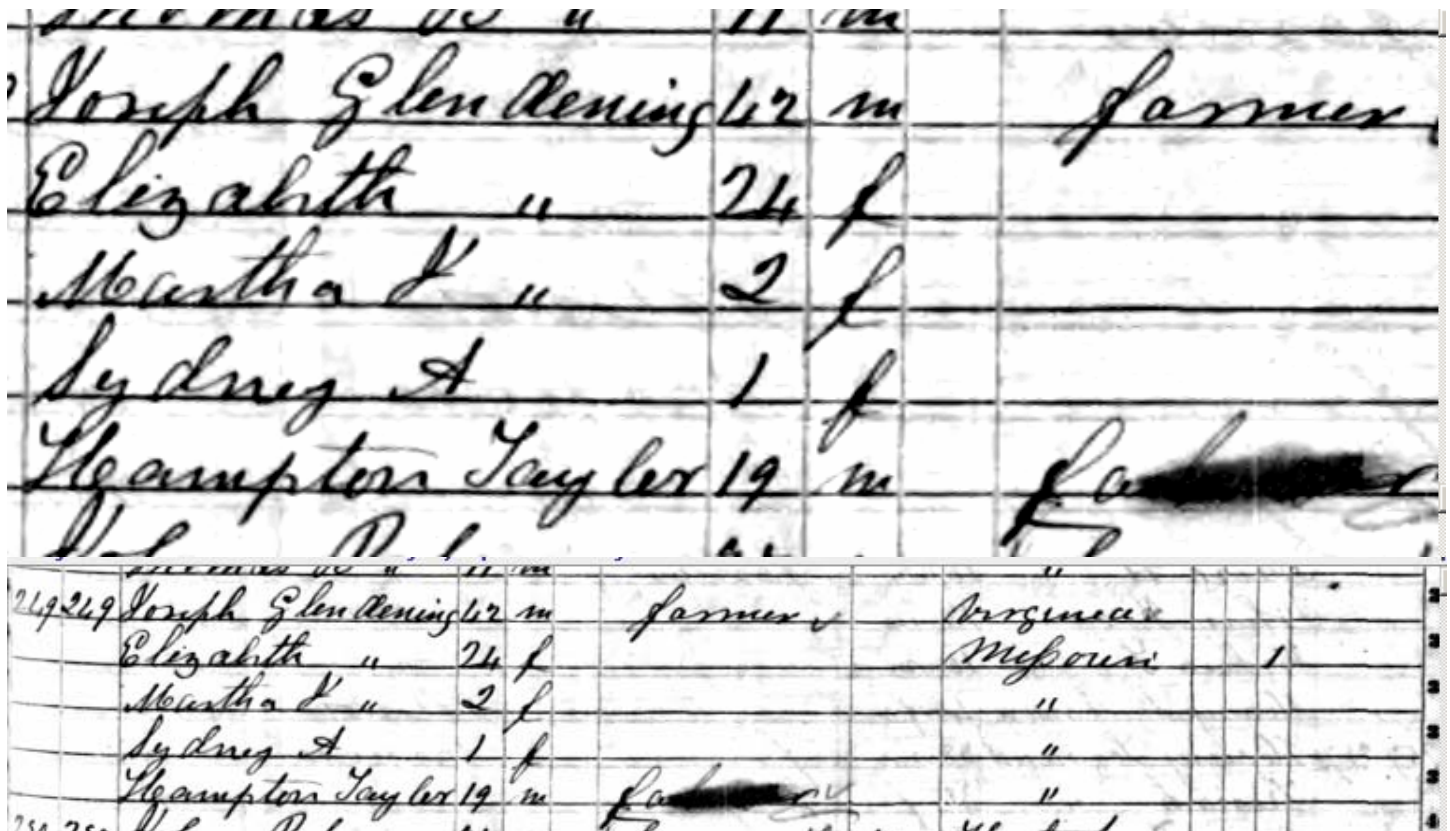 Thomas B "  11 m
Joseph Glendening 42 m farmer
Elizabeth " 24 f
Martha J " 2 f
Sydney A 1 f
Hampton Taylor 19 m
"
249 249 Joseph Glendening 42 m farmer Virginia
Elizabeth " 24 f Missouri 1
Martha J " 2 f "
Sydney A 1 f "
Hampton Taylor 19 m "